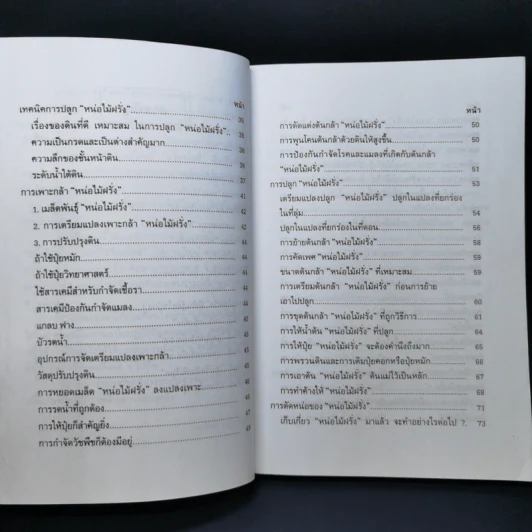 หน้า
เทคนิคการปลูก "หน่อไม้ฝรั่ง"
เรื่องของดินที่ดี เหมาะสม ในการปลูก "หน่อไม้ฝรั่ง"
ความเป็นกรดและเป็นด่างสำคัญมาก
ความลึกของชั้นหน้าดิน
ระดับน้ำใต้ดิน
การเพาะกล้า "หน่อไม้ฝรั่ง"
1. เมล็ดพันธุ์ "หน่อไม้ฝรั่ง"
2. การเตรียมแปลงเพาะกล้า "หน่อไม้ฝรั่ง"
3. การปรับปรุงดิน
ถ้าใช้ปุ๋ยหมัก
ถ้าใช้ปุ๋ยวิทยาศาสตร์
ใช้สารเคมีสำหรับกำจัดเชื้อรา
สารเคมีป้องกันกำจัดแมลง
แกลบ ฟาง
บัวรดน้ำ
อุปกรณ์การจัดเตรียมแปลงเพาะกล้า
วัสดุปรับปรุงดิน
การหยอดเมล็ด "หน่อไม้ฝรั่ง" ลงแปลงเพาะ
การรดน้ำที่ถูกต้อง
การให้ปุ๋ยก็สำคัญยิ่ง
การกำจัดวัชพืชก็ต้องมีอยู่
หน้า
การตัดแต่งต้นกล้า "หน่อไม้ฝรั่ง" 50
การพูนโคนต้นกล้าด้วยดินให้สูงขึ้น 50
การป้องกันกำจัดโรคและแมลงที่เกิดกับต้นกล้า
"หน่อไม้ฝรั่ง" 51
การปลูก "หน่อไม้ฝรั่ง" 53
เตรียมแปลงปลูก "หน่อไม้ฝรั่ง" ปลูกในแปลงที่ยกร่อง
ในที่ลุ่ม 54
ปลูกในแปลงที่ยกร่องในที่ดอน 56
การย้ายต้นกล้า "หน่อไม้ฝรั่ง" 58
การคัดเพศ "หน่อไม้ฝรั่ง" 59
ขนาดต้นกล้า "หน่อไม้ฝรั่ง" ที่เหมาะสม 59
การเตรียมต้นกล้า "หน่อไม้ฝรั่ง" ก่อนการย้าย
เอาไปปลูก 60
การขุดต้นกล้า "หน่อไม้ฝรั่ง" ที่ถูกวิธีการ 61
การให้น้ำต้น "หน่อไม้ฝรั่ง" ที่ปลูก 64
การให้ปุ๋ย "หน่อไม้ฝรั่ง" จะต้องคำนึงถึงมาก 64
การพรวนดินและการเติมปุ๋ยคอกหรือปุ๋ยหมัก 66
การเอาต้น "หน่อไม้ฝรั่ง" ต้นแม่ไว้เป็นหลัก 67
การทำค้างให้ "หน่อไม้ฝรั่ง" 68
การตัดหน่อของ "หน่อไม้ฝรั่ง" 71
เก็บเกี่ยว "หน่อไม้ฝรั่ง" มาแล้ว จะทำอย่างไรต่อไป ? 73